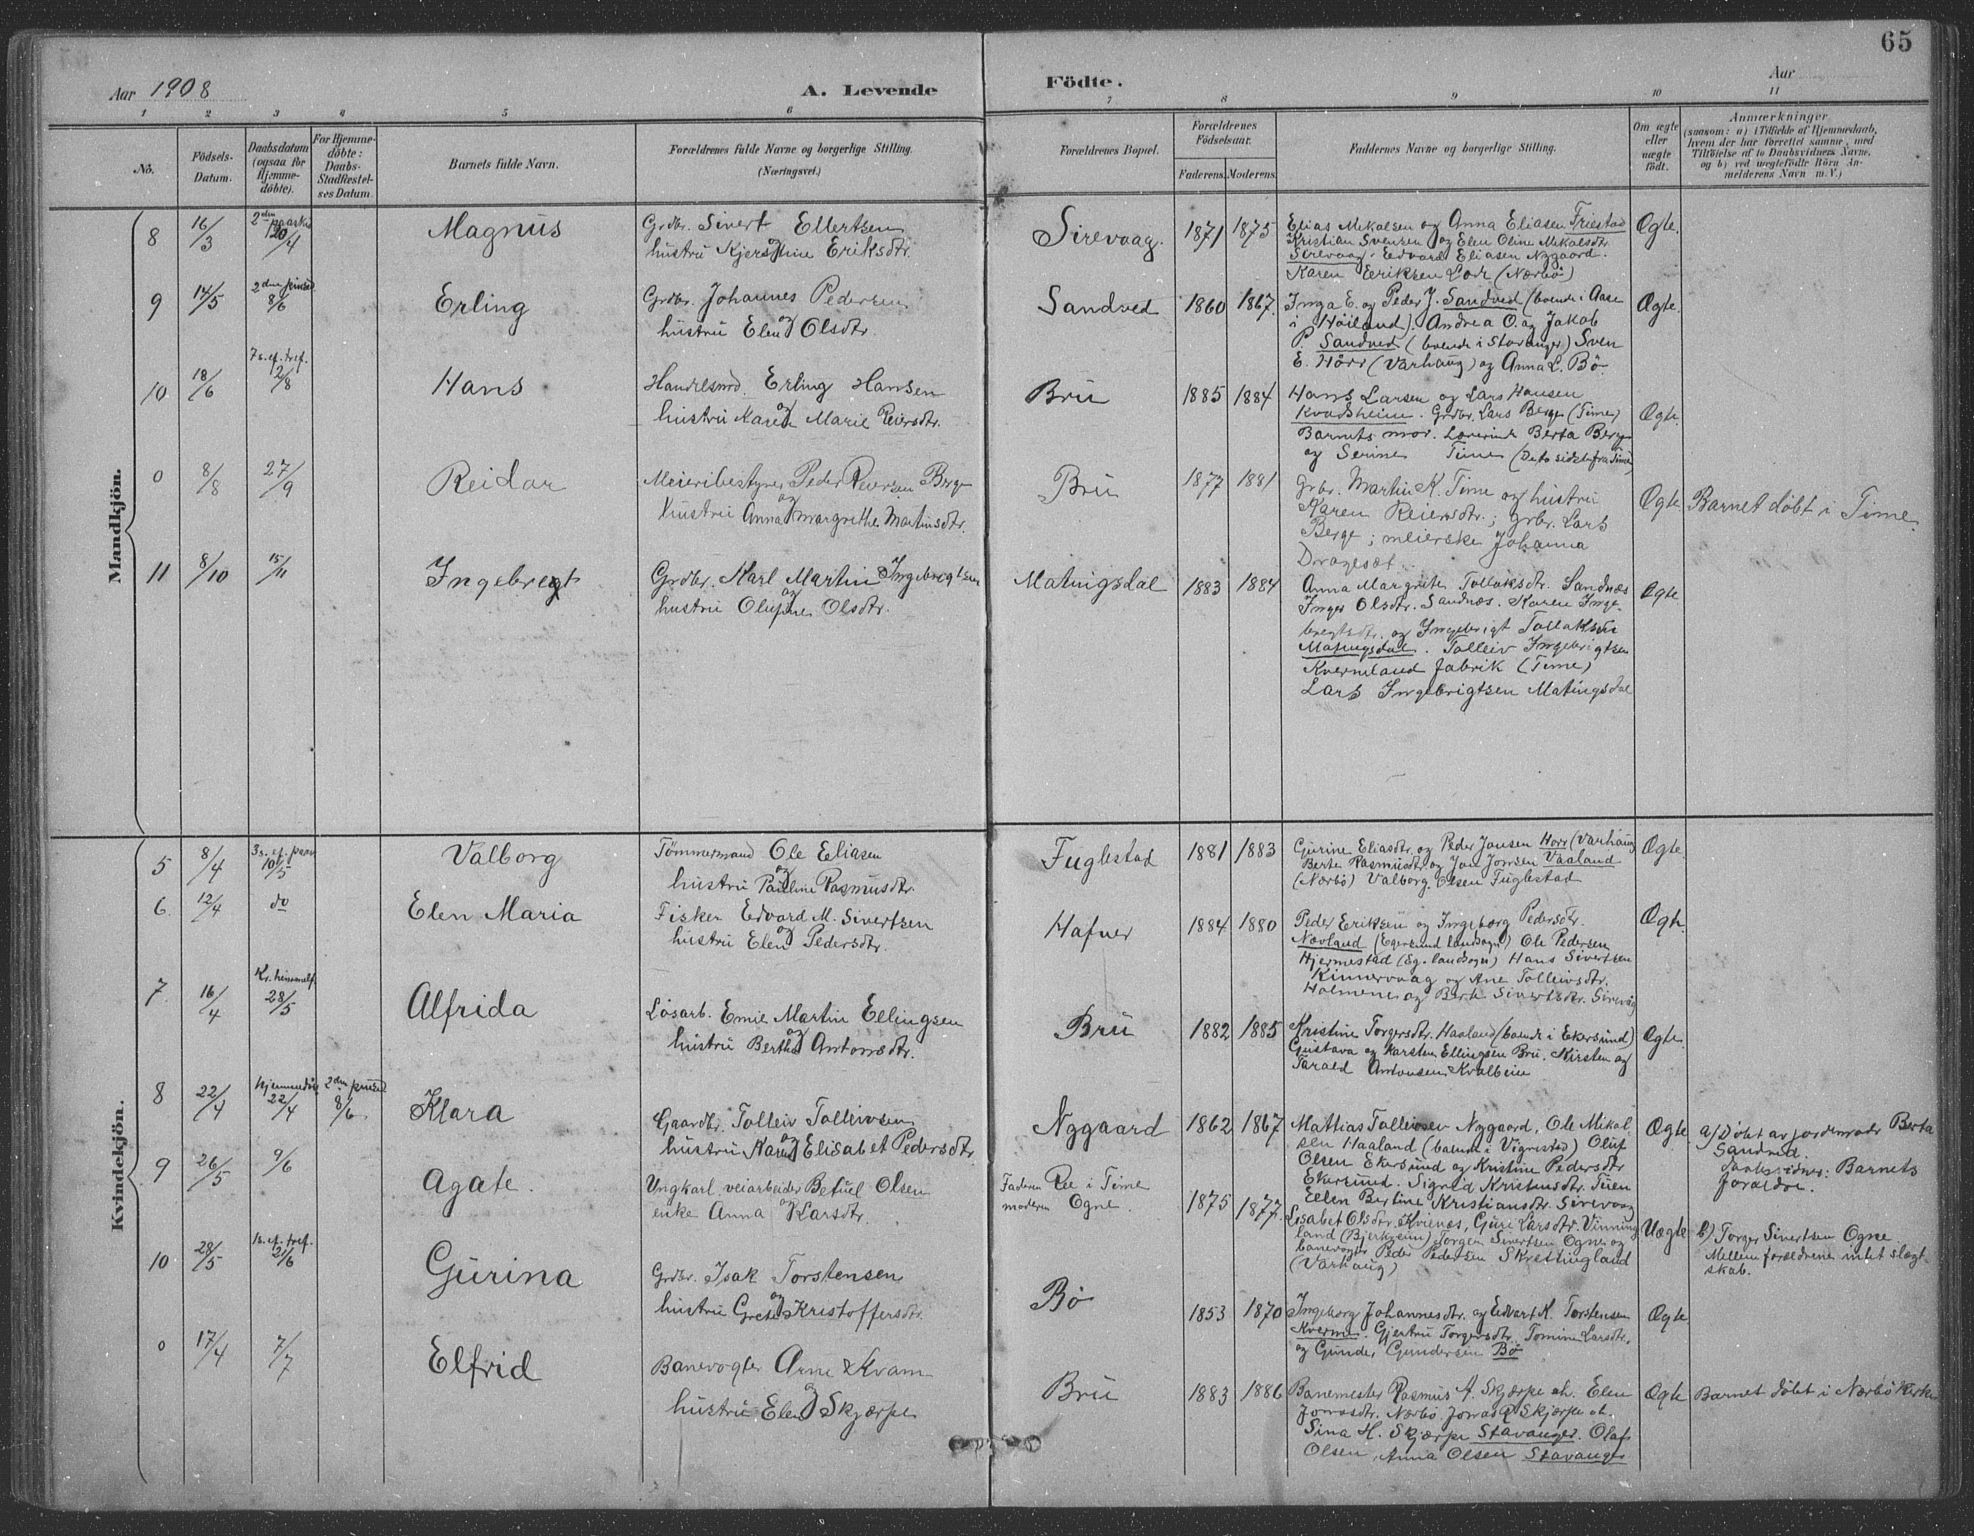 65
Aar 1908
A. Levende
Födte.
Aar
1 2 3 4 5 6 7 8 9 10 11
No.
Födsels-Datum.
Daabsdatum (ogsaa for Hjemme-döbte).
For Hjemme-döbte: Daabs-Stadfæstel-ses Datum.
Barnets fulde Navn.
Forældrenes fulde Navne og borgerlige Stilling.
(Næringsvei.)
Forældrenes Bopæl.
Forældrenes Födselsaar.
Faderens. Moderens.
Faddernes Navne og borgerlige Stilling.
Om ægte eller uægte födt.
Anmærkninger
(saasom: a) i Tilfælde af Hjemmedaab,
hvem der har forrettet samme, med
Tilföielse af to Daabsvidners Navne,
og b) ved uegtefödte Börn An-
melderens Navn m. V.)
Mandkjön.
8 16/3 2den paaske 20/4 Magnus
Grdbr. Sivert Ellertsen
og
hustru Kjerstine Eriksdtr.
Sirevaag. 1871 1875
Elias Mikalsen og Anna Eliasen Friestad
Kristian Svensen og Elen Oline Mikalsdtr.
Sirevaag. Edvard Eliasen Nygaard.
Karen Eriksen Lode (Nærbö)
Ægte.
9 14/5 2den pinsed 8/6 Erling
Grdbr. Johannes Pedersen
og
hustru Elen Olsdtr.
Sandved 1860 1867
Inga E. og Peder J. Sandved (boende i Aase
i Höiland). Andrea O. og Jakob
P. Sandved (boende i Stavanger) Sven
E. Hörr (Varhaug) og Anna L. Bö.
Ægte.
10 18/6 7s. ef. tref. 2/8 Hans
Handelsmd. Erling Hansen
og
hustru Karen Marie Reiersdtr.
Bru 1885 1884
Hans Larsen og Lars Hansen
Kvadsheim. Grdbr. Lars Berge (Time)
Barnets mor. Lærerinde Berta Berge
og Serine Time (De to sidste fra Time)
Ægte.
0 8/8 27/9 Reidar
Meieribestyrer Peder Reiersen Berge
og
hustru Anna Margrethe Martinsdtr.
Bru 1877 1881
Grbr. Martin K. Time og hustru
Karen Reiersdtr.; grbr. Lars
Berge; meierske Johanna
Dragesæt.
Ægte Barnet döbt i Time.
11 8/10 15/11 Ingebregt
Grdbr. Karl Martin Ingebrigtsen
og
hustru Olufine Olsdtr.
Matningsdal 1883 1884
Anna Margrete Tollaksdtr. Sandnæs
Inger Olsdtr. Sandnæs. Karen Inge-
bregtsdtr. og Ingebrigt Tollaksen
Matingsdal. Tolleiv Ingebrigtsen
Kverneland fabrik (Time)
Lars Ingebrigtsen Matingsdal
Ægte
Kvindekjön.
5 8/4 3s. ef. paas 10/5 Valborg
Tömmermand Ole Eliasen
og
hustru Pauline Rasmusdtr.
Fuglestad 1881 1883
Gurine Eliasdtr. og Peder Jansen Horr (Varhaug
Berte Rasmusdtr. og Jon Jonsen Vaaland
(Nærbö) Valborg Olsen Fuglestad
Ægte.
6 12/4 do Elen Maria
Fisker Edvard M. Sivertsen
og
hustru Elen Pedersdtr.
Hafner 1884 1880
Peder Eriksen og Ingeborg Pedersdtr.
Nævland (Egersund landsogn) Ole Pedersen
Hjermestad (Eg. landsogn) Hans Sivertsen
Kinnervaag og Ane Tolleivsdtr.
Holmene og Berte Sivertsdtr. Sirevåg
Ægte.
7 16/4 Kr. himmelf. 28/5 Alfrida
Løsarb. Emil Martin Ellingsen
og
hustru Bertha Antonsdtr.
Bru 1882 1885
Kristine Torgersdtr. Haaland (boende i Ekersund)
Gustava og Karsten Ellingsen Bru. Kirsten og
Tarald Antonsen Kvalbein
Ægte.
8 22/4 hjemmedöbt 22/4 2den pinsed 8/6 Klara
Gaardbr. Tolleiv Tolleivsen
og
hustru Karen Elisabet Pedersdtr.
Nygaard 1862 1867
Mathias Tolleivsen Nygaard, Ole Mikal-
sen Haaland (boende i Vigrestad) Oluf
Olsen Ekersund og Kristine Pedersdtr
Ekersund. Sigrid Kristensdtr. Tuen
Ellen Bertine Kristiansdtr. Sirevaag
Ægte. a) Döbt av jordemoder Berta
Sandved.
Daabsvidner: Barnets
foraldre.
9 26/5 9/6 Agate.
Ungkarl, veiarbeider Betuel Olsen
og
enke Anna Larsdtr.
Faderen Ree i Time
moderen Ogne. 1875 1877
Lisabet Olsdtr. Kvienes, Guri Larsdtr. Vinning-
land (Bjerkreim) Torger Sivertsen Ogne og
banevogter Peder Pedersen Skretingland
(Varhaug)
Uægte b) Torger Sivertsen Ogne.
Mellem forældrene intet slægt-
skab.
10 28/5 1s. ef. tref. 21/6 Gurina
Grdbr. Isak Torstensen
og
hustru Grete Kristoffersdtr.
Bö 1853 1870
Ingeborg Johannesdtr. og Edvart K. Torstensen
Kverme. Gjertru Torgersdtr. Tomine Larsdtr.
og Gunder Gundersen Bö
Ægte
0 17/4 7/7 Elfrid
Banevogter Arne Kvam
og
hustru Elen Skjærpe
Bru 1883 1886
Banemester Rasmus A. Skjærpe oh. Elen
Jonasdtr. Nærbö, Jonas R Skjærpe oh.
Sina H. Skjærpe Stavanger. Olaf
Olsen, Anna Olsen Stavanger
Ægte Barnet döbt i Nærbö Kirke